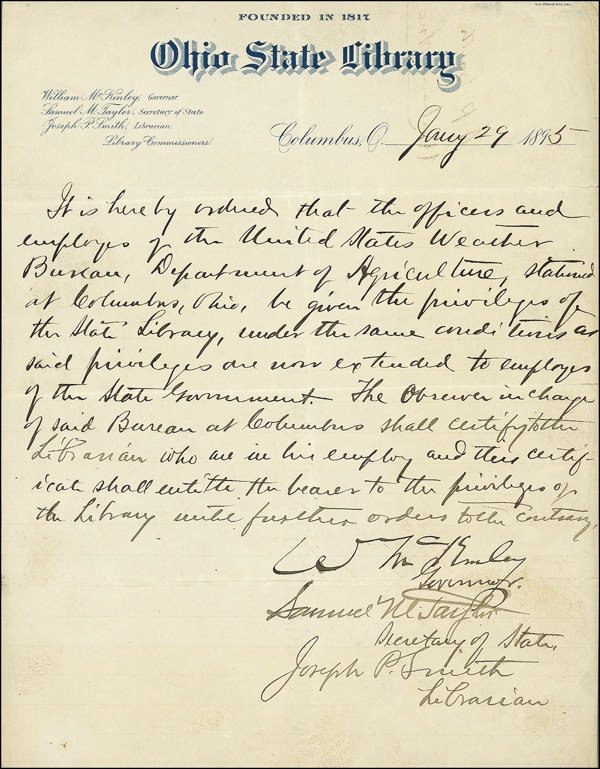 FOUNDED IN 1817
Ohio State Library
William McKinley, Governor
Samuel M. Taylor, Secretary of State
Joseph P. Smith, Librarian
Library Commissioners.
Columbus, O. Jany 29 1895
It is hereby ordered that the officers and
employes of the United States Weather
Bureau, Department of Agriculture, stationed
at Columbus, Ohio, be given the privileges of
the State Library, under the same conditions as
said privileges are now extended to employes
of the State Government. The Observer in charge
of said Bureau at Columbus shall certify to the
Librarian who are in his employ and this certif-
icate shall entitle the bearer to the privileges of
the Library until further orders to the contrary.
W McKinley
Governor.
Samuel M. Taylor
Secretary of State.
Joseph P. Smith
Librarian